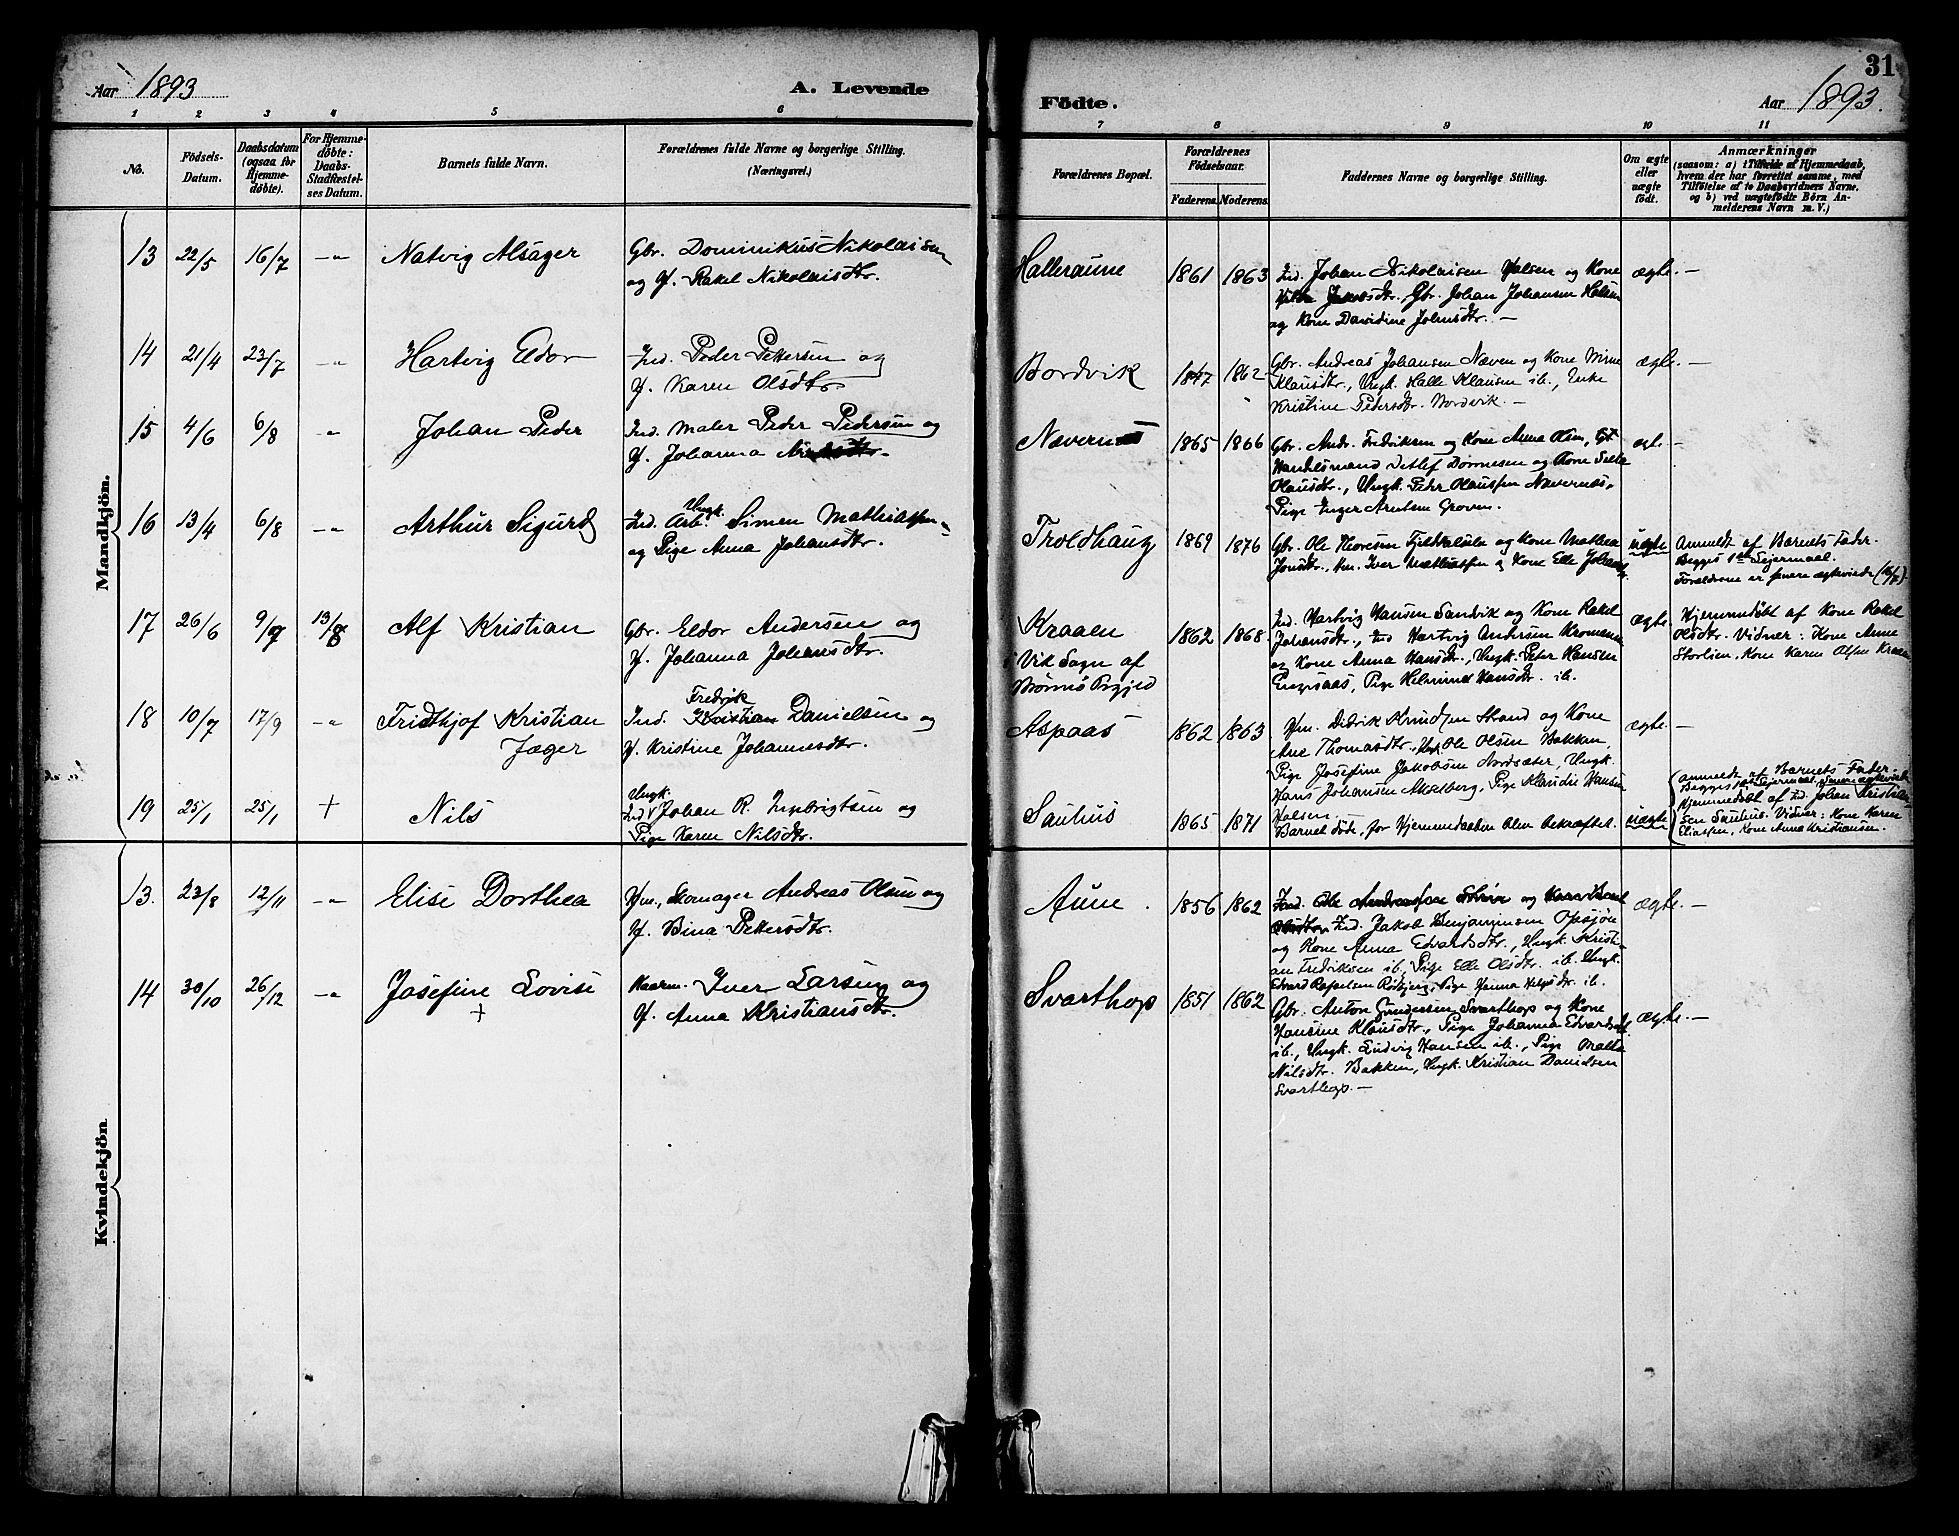 31
Aar 1893
A. Levende
Födte.
Aar 1893.
1 2 3 4 5 6 7 8 9 10 11
No.
Födsels-
Datum.
Daabsdatum
(ogsaa for
Hjemme-
döbte).
For Hjemme-
döbte:
Daabs-
Stadfæstel-
ses Datum.
Barnets fulde Navn.
Forældrenes fulde Navne og borgerlige Stilling.
(Næringsvei.)
Forældrenes Bopæl.
Forældrenes
Födselsaar.
Faderens. Moderens.
Faddernes Navne og borgerlige Stilling.
Om ægte
eller
uægte
födt.
Anmærkninger
(saasom: a) i Tilfælde af Hjemmedaab,
hvem der har forrettet samme, med
Tilföielse af to Daabsvidners Navne,
og b) ved uægtefödte Börn An-
melderens Navn m. V.)
Mandkjön.
13 22/5 16/7 -"- Natvig Alsager
Gbr. Dominikus Nikolaisen
og H. Rakel Nikolaisdtr.
Halleraune 1861 1863
Ind. Johan Nikolaisen Halsen og Kone
Jakobsdtr., Gbr. Johan Johansen
og Kone Davidine Johnsdtr. —
ægte. —
14 21/4 23/7 -"- Hartvig Eldor
Ind. Peder Pettersen og
H. Karen Olsdtr.
Bordvik 1847 1862
Gbr. Andreas Johansen Næven og Kone
Klausdtr., Ungk. Halle Klausen ib., Enke
Kristine Pedersdtr. Bordvik. —
ægte. —
15 4/6 6/8 -"- Johan Peder
Ind. Maler Peder Pedersen og
H. Johanna
1865 1866
Gbr. Andr. Fredriksen og Kone Anna Olsen,
Handelsmand Detlef og Kone
Olausdtr., Ungk. Peder Olaussen Nævernes,
Pige Inger Arntsen Groven.
ægte. —
16 13/4 6/8 -"- Arthur Sigurd
Ungk.
Ind. Arb. Simen Mathiassen
og Pige Anna Johansdtr.
Troldhaug 1869 1876
Gbr. Ole Thoresen og Kone Mathea
Jonsdtr., Iver Mathiassen og Kone Elle
uægte
Anmeldt af Barnets Fader.
Begges 1ste Leiermaal.
Forældrene er senere ægteviede
17 26/6 9/7 13/8 Alf Kristian
Gbr. Eldor Andersen og
H. Johanna Johansdtr.
Kraaen
i Vik Sogn af
Brønnø Prgjld
1862 1868
Ind. Hartvig Hansen Sandvik og Kone Rakel
Johansdtr., Ind Hartvig Andersen
og Kone Anna Hansdtr., Ungk. Peter Hansen
Engesaas, Pige Hansdtr. ib.
ægte.
Hjemmedøbt af Kone Rakel
Olsdtr. Vidner: Kone Anne
Storlien, Kone Karen Olsen
18 10/7 17/9 -"- Fridthjof Kristian
Jæger
Fredrik
Ind. Kristian Danielsen og
H. Kristine Johannesdtr.
Aspaas 1862 1863
Hm. Didrik Knudsen Strand og Kone
Ane Thomasdtr., Ole Olsen Bakken,
Pige Josefine Jakobsen Nordsæter, Ungk.
Hans Johansen Akselberg, Pige Hansen
Halsen
ægte. —
19 25/1 25/1 + Nils
Ungk.
Ind. Johan R. Ingebrigtsen og
Pige Karen Nilsdtr.
Sauhus 1865 1871
Barnet døde, før Hjemmedaaben blev bekræftet.
uægte
Anmeldt af Barnets Fader.
Begges
Hjemmedøbt af Ind. Johan Kristian-
sen Sauhus. Vidner: Kone Karen
Eliassen, Kone Anna Kristiansen.
Kvindekjön
13. 23/8 12/11 -"- Elise Dorthea
Hm., Skomager Andreas Olsen og
H. Bina Pettersdtr.
Aune. 1856 1862
Ind. Jakob Benjaminsen Opsjøn
og Kone Anna Edvardsdtr., Ungk. Kristi-
an Fredriksen ib., Pige Elle Olsdtr. ib. Ungk.
Edvard Rafaelsen Pige Hanna ib.
ægte. —
14 30/10 26/12 -"- Josefine Lovise
+
Iver Larsen og
H. Anna Kristiansdtr.
Svarthop 1851 1862
Gbr. Anton Gundersen Svarthop og Kone
Hansine Klausdtr., Pige Johanna
ib., Ungk. Ludvig Hansen ib., Pige
Nilsdtr. Bakken, Ungk. Kristian Danielsen
Svarthop. —
ægte. —